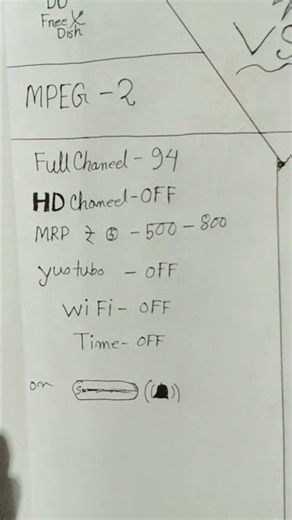 DD
Free X
Dish
VS
MPEG - 2
Full Chaneel - 94
HD Chaneel - OFF
MRP ₹ - 500 - 800
yuotubo - OFF
Wi Fi - OFF
Time - OFF
on